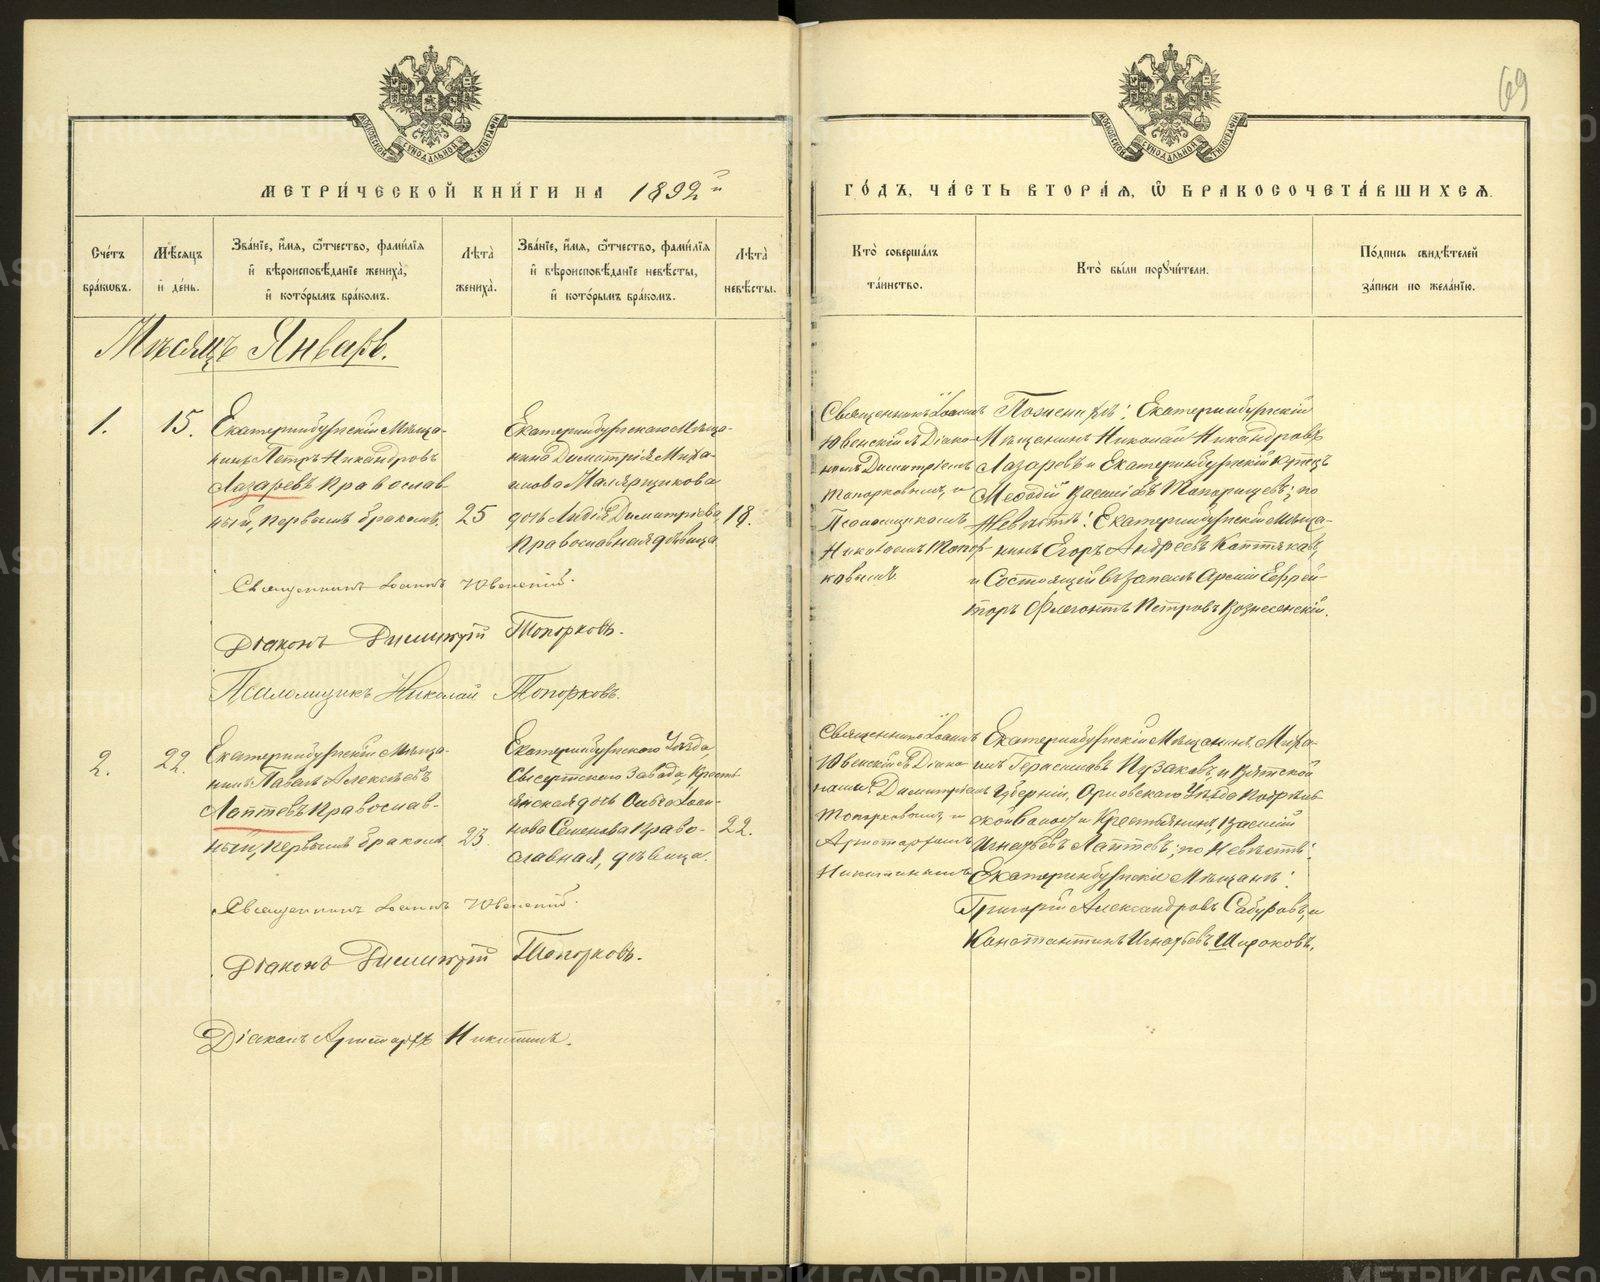 69
МОСКОВСКОЙ СѴНОДАЛЬНОЙ ТИПОГРАФІИ
МОСКОВСКОЙ СѴНОДАЛЬНОЙ ТИПОГРАФІИ
МЕТРИ́ЧЕСКОЙ КНИ́ГИ НА 1892й
ГО́ДЪ, ЧА́СТЬ ВТОРА́Ѧ, Ѡ҆ БРАКОСОЧЕТА́ВШИХСѦ.
Сче́тъ
бра́кѡвъ.
Мѣ́сяцъ
и҆ де́нь.
Зва́нїе, и҆́мя, ѻ҆́тчество, фами́лїя
и҆ вѣроисповѣ́данїе жениха̀,
и҆ кото́рымъ бра́комъ.
Лѣ́та
жениха̀.
Зва́нїе, и҆́мя, ѻ҆́тчество, фами́лїя
и҆ вѣроисповѣ́данїе невѣ́сты,
и҆ кото́рымъ бра́комъ.
Лѣ́та
невѣ́сты.
Кто̀ соверша́лъ
та́инство.
Кто̀ бы́ли порꙋчи́тели.
По́дпись свидѣ́телей
за́писи по жела́нїю.
Мѣсяцъ Январь.
1.
15.
Екатеринбургскій Мѣща-
нинъ Петръ Никандровъ
Лазаревъ Православ-
ный, первымъ бракомъ.
25
Екатеринбургскаго Мѣща-
нина Димитрія Миха-
илова Малярщикова
дочь Лидія Димитріева,
Православная дѣвица
18.
Священникъ Іоаннъ
Ювенскій съ Діако-
номъ Димитріемъ
Топорковымъ, и
Псаломщикомъ
Николаемъ Топор-
ковымъ.
По женихѣ: Екатеринбургскій
Мѣщанинъ Николай Никандровъ
Лазаревъ и Екатеринбургскій Купецъ
Мефодій Василіевъ Топорищевъ; по
Невѣстѣ: Екатеринбургскій Мѣща-
нинъ Егоръ Андреевъ Коптяковъ,
и Состоящій въ запасѣ Арміи Ефрей-
торъ Флегонтъ Петровъ Вознесенскій.
Священникъ Іоаннъ Ювенскій.
Діаконъ Димитрій Топорковъ.
Псаломщикъ Николай Топорковъ.
2.
22.
Екатеринбургскій Мѣща-
нинъ Павелъ Алексѣевъ
Лаптевъ Православ-
ный, первымъ бракомъ.
23.
Екатеринбургскаго Уѣзда,
Сысертскаго Завода, Кресть-
янская дочь Ольга Іоан-
нова Семенова Право-
славная, дѣвица.
22.
Священникъ Іоаннъ
Ювенскій съ Діако-
нами: Димитріемъ
Топорковымъ, и
Аристархомъ
Никитинымъ
Екатеринбургскій Мѣщанинъ Миха-
илъ Герасимовъ Пузаковъ, и Вятской
Губерніи, Орловскаго Уѣзда
Крестьянинъ, Василій
Игнатьевъ Лаптевъ; по Невѣстѣ:
Екатеринбургскіе Мѣщане:
Григорій Александровъ Сабуровъ, и
Константинъ Игнатьевъ Широковъ.
Священникъ Іоаннъ Ювенскій.
Діаконъ Димитрій Топорковъ.
Діаконъ Аристархъ Никитинъ.
METRIKI.GASO-URAL.RU